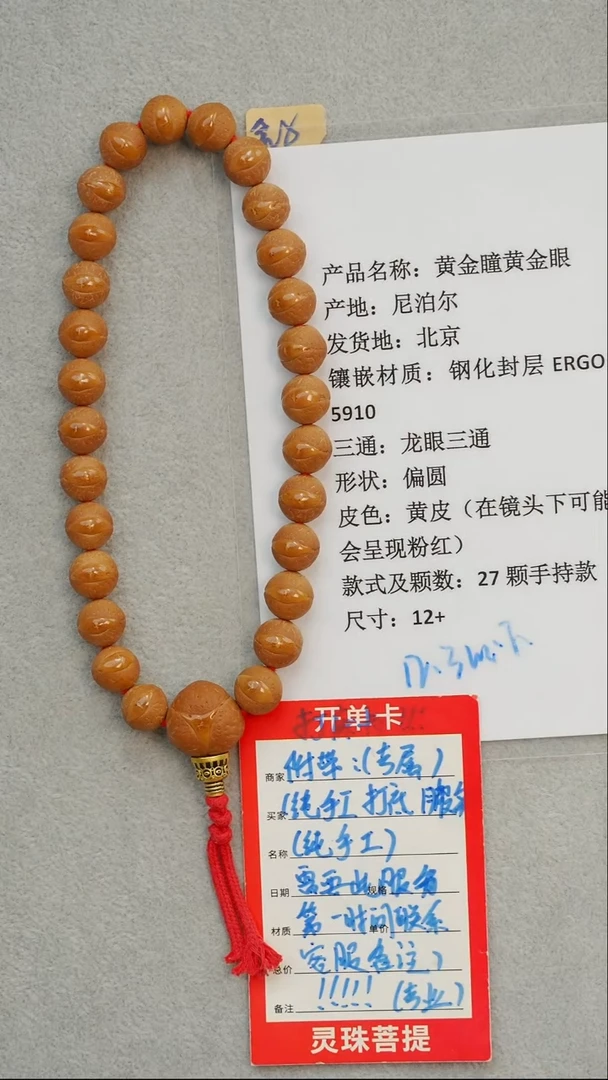 产品名称：黄金瞳黄金眼
产地：尼泊尔
发货地：北京
镶嵌材质：钢化封层 ERGO
5910
三通：龙眼三通
形状：偏圆
皮色：黄皮（在镜头下可能
会呈现粉红）
款式及颗数：27 颗手持款
尺寸：12+
开单卡
商家 附带：(专属)
买家 (纯手工 打底 服务
名称 (纯手工)
日期 需要此服务 规格
材质 第一时间联系 单价
总价 客服备注)
备注 !!!!! (专业)
灵珠菩提